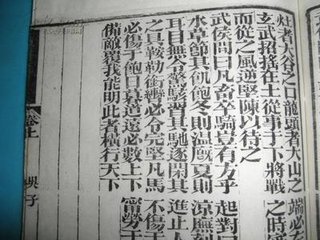 灶者大谷之口龍頭者大山之
端必
玄武招搖在上從事于下將戰
之時
而從之風逆堅陳以待之
武侯問曰凡畜卒騎豈有方乎
起對
水草節其飢飽冬則溫廐夏則
涼廡
耳目無令驚駭習其馳逐閑其
進止
之具鞍勒銜轡必令完堅凡馬
不傷于
必傷于飽日暮道遠必數上下
甯勞于
備敵覆我能明此者橫行天下
卷上 吳子